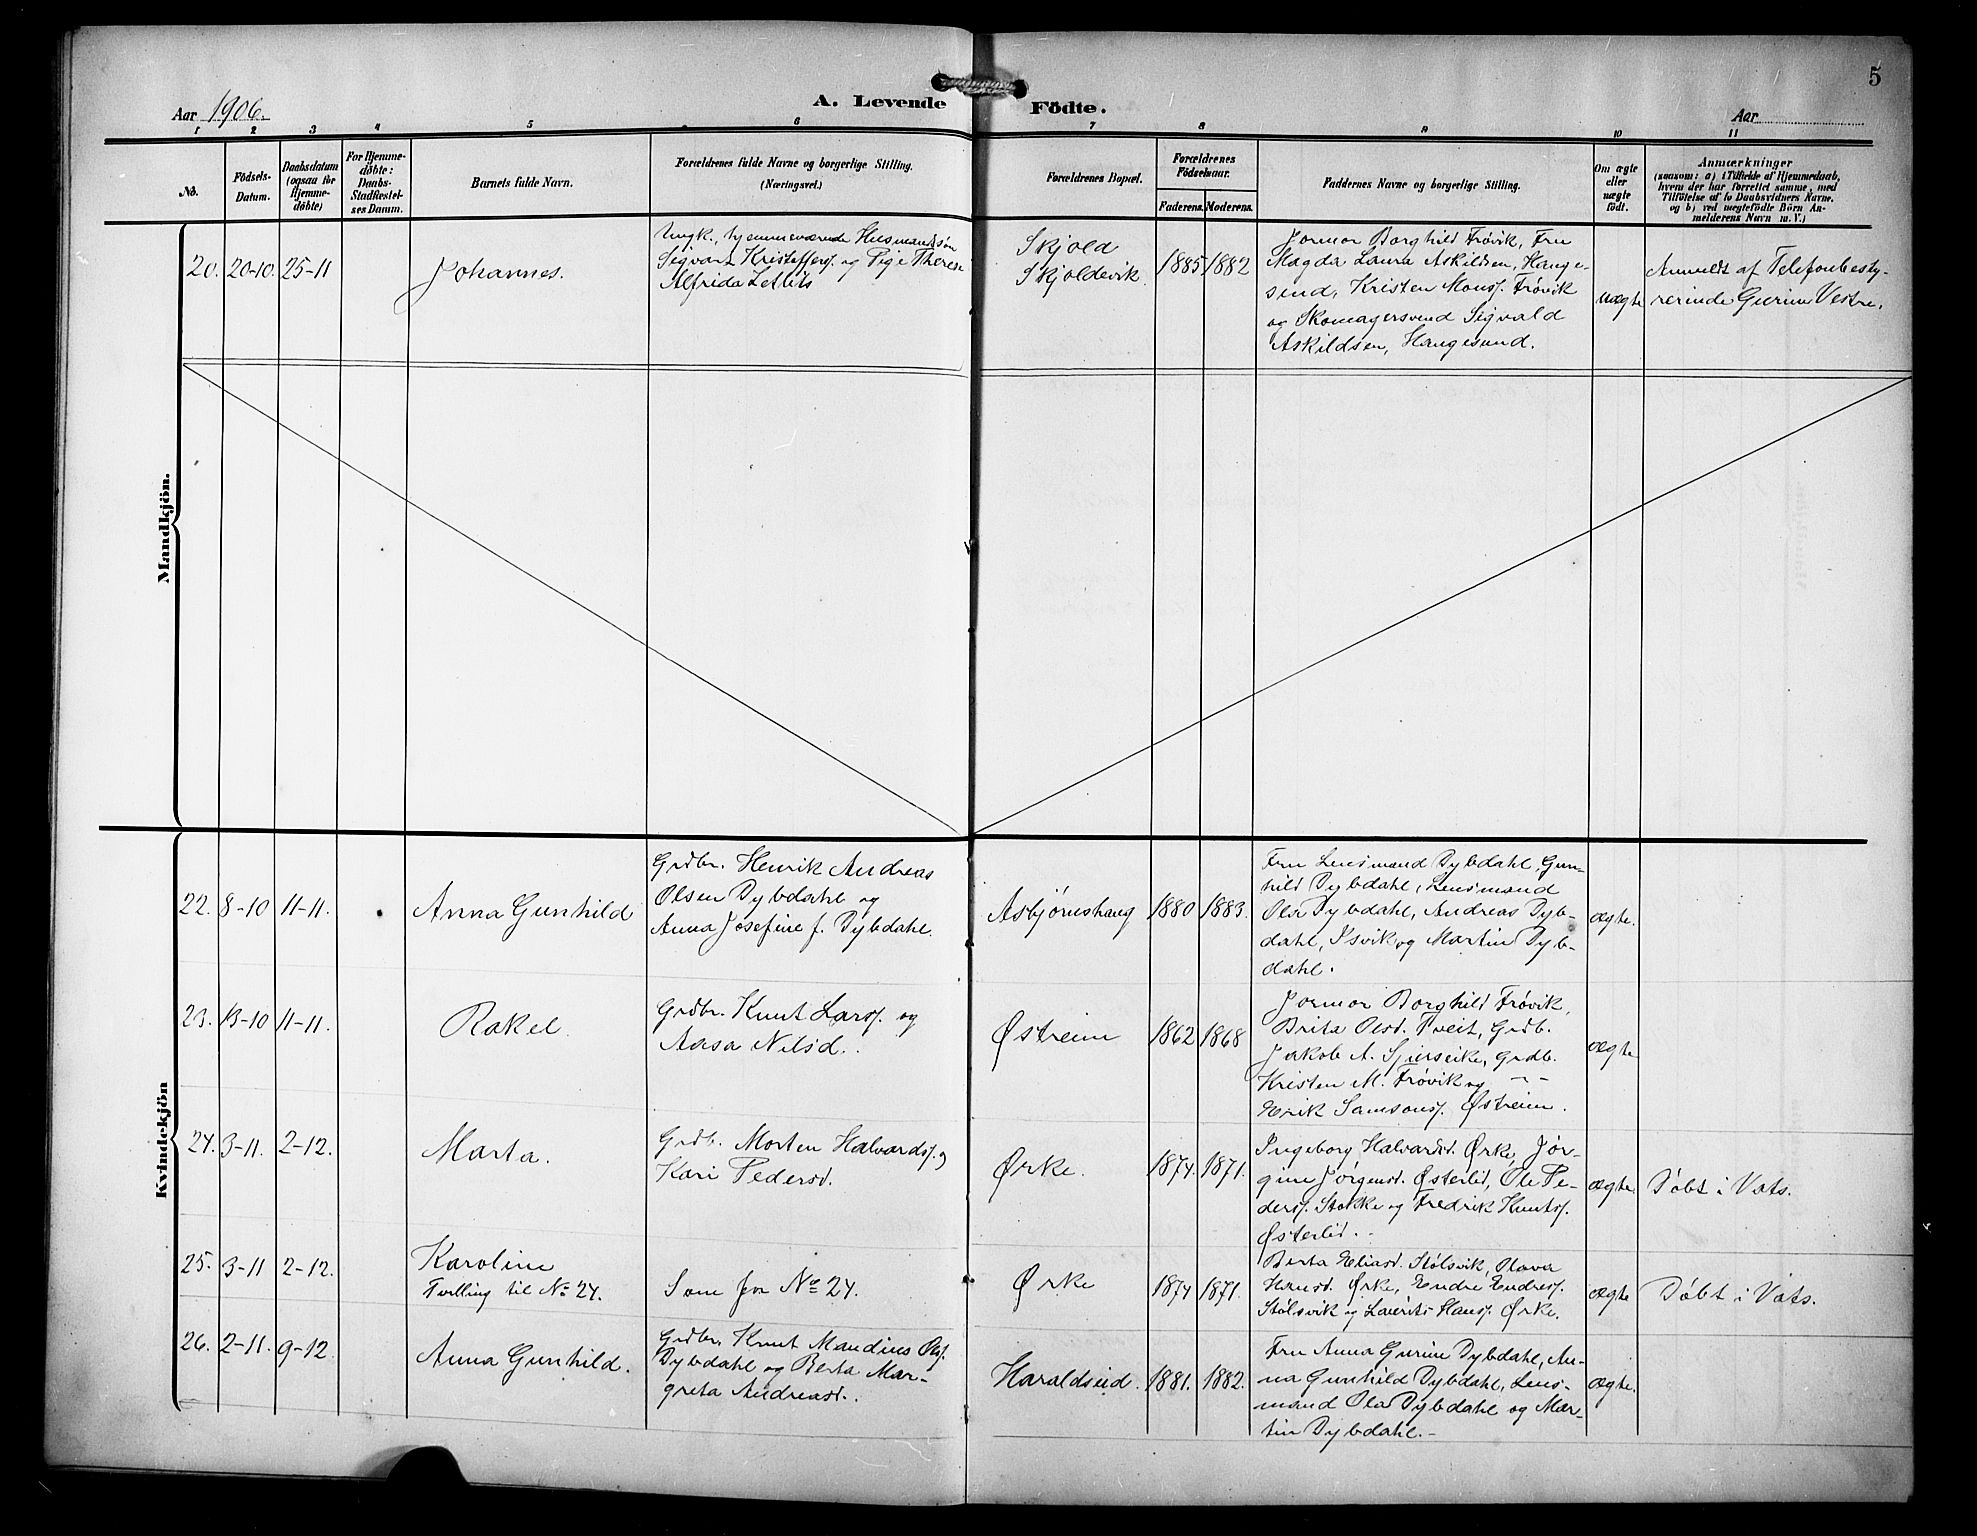 5
Aar 1906.
A. Levende Födte.
Aar
1 2 3 4 5 6 7 8 9 10 11
No.
Födsels-
Datum.
Daabsdatum
(ogsaa for
Hjemme-
døbte)
For Hjemme-
døbte:
Daabs-
Stadfæstel-
ses Datum.
Barnets fulde Navn.
Forældrenes fulde Navne og borgerlige Stilling.
(Næringsvei.)
Forældrenes Bopæl.
Forældrenes
Födselsaar.
Faderens. Moderens.
Faddernes Navne og borgerlige Stilling.
Om ægte
eller
uægte
født.
Anmærkninger
(saasom: a) i Tilfælde af Hjemmedaab,
hvem der har forrettet samme, med
Tilføielse af to Daabsvidners Navne.
og b) ved uægtefødte Börn An-
melderens Navn m. V.)
Mandkjön.
20. 20-10. 25-11
Johannes.
Ungk., hjemmeværende Husmandssøn
Sigvart Kristoffers. og Pige Therese
Alfrida
Skjold
Skjoldevik.
1885 1882
Jormor Borghild Frøvik, Fru
Magda Laura Askildsen, Hauge-
sund, Kristen Mons. Frøvik
og Skomagersvend Sigvald
Askildsen, Haugesund.
uægte
Anmeldt af Telefonbesty-
rerinde Gurine Vestre.
Kvindekjön
22. 8-10 11-11.
Anna Gunhild
Grdbr. Henrik Andreas
Olsen Dybdahl og
Anna Josefine f. Dybdahl.
Asbjørnshaug
1880 1883.
Fru Lensmand Dybdahl, Gun-
hild Dybdahl, Lensmand
Ola Dybdahl, Andreas Dyb-
dahl, Isvik og Martin Dyb-
dahl.
ægte.
23. 13-10 11-11.
Rakel.
Grdbr. Knut Lars. og
Aasa Nilsd..
Østreim
1862 1868
Jormor Borghild Frøvik,
Brita Olsd. Tveit, Grdb.
Jakob A. Gjerseike, Grdb.
Kristen M. Frøvik og - -
Erik Samsons. Østreim.
ægte
24. 3-11. 2-12.
Marta.
Grdb. Morten Halvards. og
Kari Pedersd.
Ørke.
1874. 1871.
Ingeborg Halvardsd. Ørke, Jør-
gine Jørgensd. Østerlid, Ole Pe-
ders. Stokke og Fredrik Knuts.
Østerlid. -
ægte.
Døbt i Vats.
25. 3-11 2-12.
Karoline
Tvilling til No 24.
Som for No 24.
Ørke
1874 1871.
Berta Eliasd. Stølsvik, Olava
Hansd. Ørke, Endre Endres.
Stølsvik og Laurits Hans. Ørke.
ægte
Døbt i Vats.
26. 2-11. 9-12.
Anna Gunhild.
Grdbr. Knut Mandius Ols.
Dybdahl og Berta Mar-
greta Andreasd..
Haraldseid.
1881. 1882.
Fru Anna Gurine Dybdahl, An-
na Gunhild Dybdahl, Lens-
mand Ola Dybdahl og Mar-
tin Dybdahl.-
ægte.